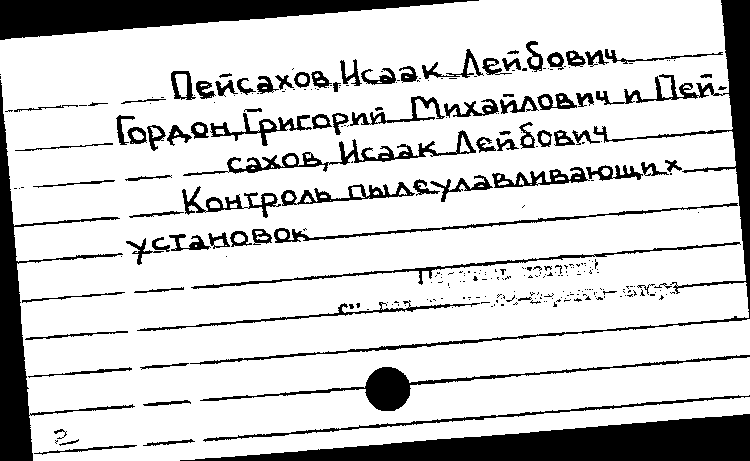 Пейсахов, Исаак Лейбович.
Гордон, Григорий Михайлович и Пей-
сахов, Исаак Лейбович
Контроль пылеулавливающих
установок
см. под
2